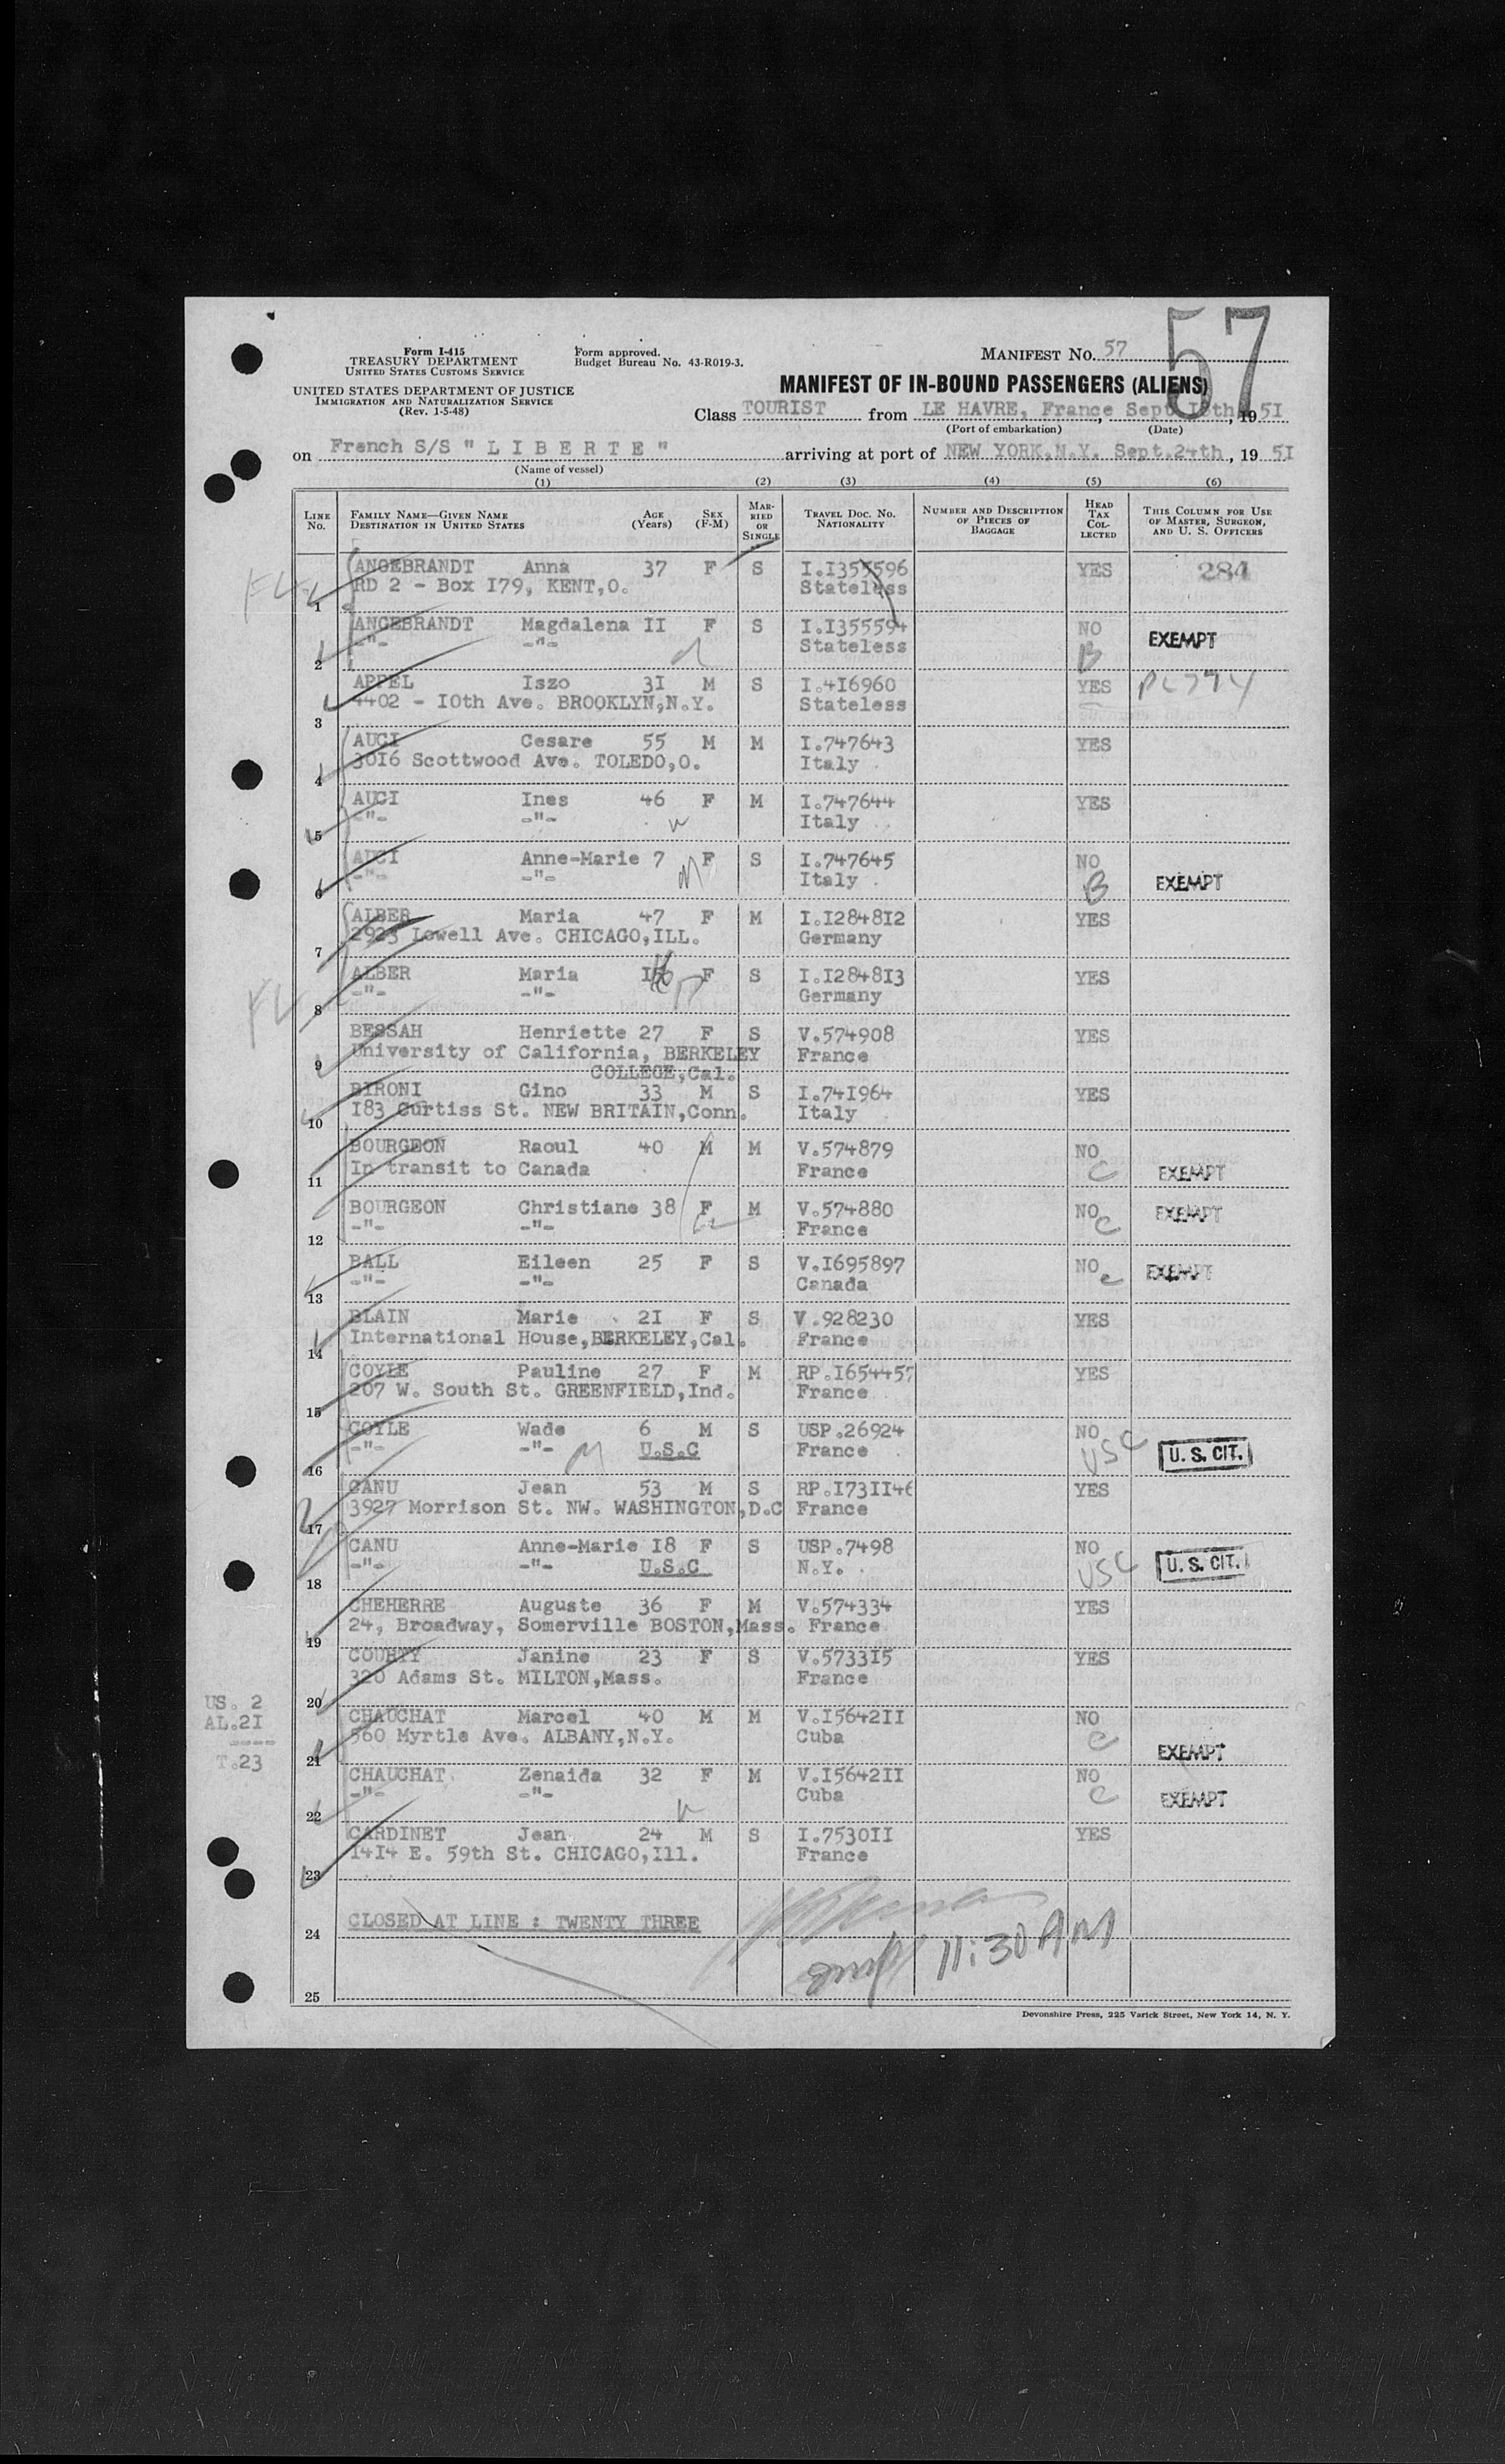 57
Form I-415
TREASURY DEPARTMENT
UNITED STATES CUSTOMS SERVICE
UNITED STATES DEPARTMENT OF JUSTICE
IMMIGRATION AND NATURALIZATION SERVICE
(Rev. 1-5-48)
Form approved.
Budget Bureau No. 43-R019-3.
MANIFEST No. 57
MANIFEST OF IN-BOUND PASSENGERS (ALIENS)
Class TOURIST from LE HAVRE, France Sept , 19 5I
(Port of embarkation) (Date)
on French S/S " L I B E R T E " arriving at port of NEW YORK,N.Y. Sept.24th , 19 5I
(Name of vessel)
(1) (2) (3) (4) (5) (6)
LINE No. FAMILY NAME—GIVEN NAME DESTINATION IN UNITED STATES AGE (Years) SEX (F-M) MARRIED OR SINGLE TRAVEL DOC. NO. NATIONALITY NUMBER AND DESCRIPTION OF PIECES OF BAGGAGE HEAD TAX COLLECTED THIS COLUMN FOR USE OF MASTER, SURGEON, AND U. S. OFFICERS
ANGEBRANDT Anna 37 F S I.I355596 YES 284
RD 2 - Box I79, KENT,O. Stateless
1
ANGEBRANDT Magdalena II F S I.I355594 NO EXEMPT
-"- -"- Stateless B
2
APPEL Iszo 3I M S I.4I6960 YES
4402 - I0th Ave. BROOKLYN,N.Y. Stateless
3
AUCI Cesare 55 M M I.747643 YES
30I6 Scottwood Ave. TOLEDO,O. Italy
4
AUCI Ines 46 F M I.747644 YES
-"- -"- Italy
5
AUCI Anne-Marie 7 F S I.747645 NO
-"- -"- Italy B EXEMPT
6
ALBER Maria 47 F M I.I2848I2 YES
2923 Lowell Ave. CHICAGO,ILL. Germany
7
ALBER Maria F S I.I2848I3 YES
-"- -"- Germany
8
BESSAH Henriette 27 F S V.574908 YES
University of California, BERKELEY France
COLLEGE,Cal.
9
BIRONI Gino 33 M S I.74I964 YES
I83 Curtiss St. NEW BRITAIN,Conn. Italy
10
BOURGEON Raoul 40 M M V.574879 NO
In transit to Canada France C EXEMPT
11
BOURGEON Christiane 38 F M V.574880 NO C EXEMPT
-"- -"- France
12
BALL Eileen 25 F S V.I695897 NO C EXEMPT
-"- -"- Canada
13
BLAIN Marie 2I F S V.928230 YES
International House,BERKELEY,Cal. France
14
COYLE Pauline 27 F M RP.I654457 YES
207 W. South St. GREENFIELD,Ind. France
15
COYLE Wade 6 M S USP.26924 NO
-"- -"- U.S.C France USC U. S. CIT.
16
CANU Jean 53 M S RP.I73II46 YES
3927 Morrison St. NW. WASHINGTON,D.C France
17
CANU Anne-Marie I8 F S USP.7498 NO
-"- -"- U.S.C N.Y. USC U. S. CIT.
18
CHEHERRE Auguste 36 F M V.574334 YES
24, Broadway, Somerville BOSTON,Mass. France
19
COURTY Janine 23 F S V.5733I5 YES
320 Adams St. MILTON,Mass. France
20
US. 2
AL.2I
----
T.23
CHAUCHAT Marcel 40 M M V.I5642II NO
560 Myrtle Ave. ALBANY,N.Y. Cuba C EXEMPT
21
CHAUCHAT Zenaida 32 F M V.I5642II NO
-"- -"- Cuba C EXEMPT
22
CARDINET Jean 24 M S I.7530II YES
I4I4 E. 59th St. CHICAGO,Ill. France
23
CLOSED AT LINE : TWENTY THREE
24
11:30 AM
25
Devonshire Press, 225 Varick Street, New York 14, N. Y.